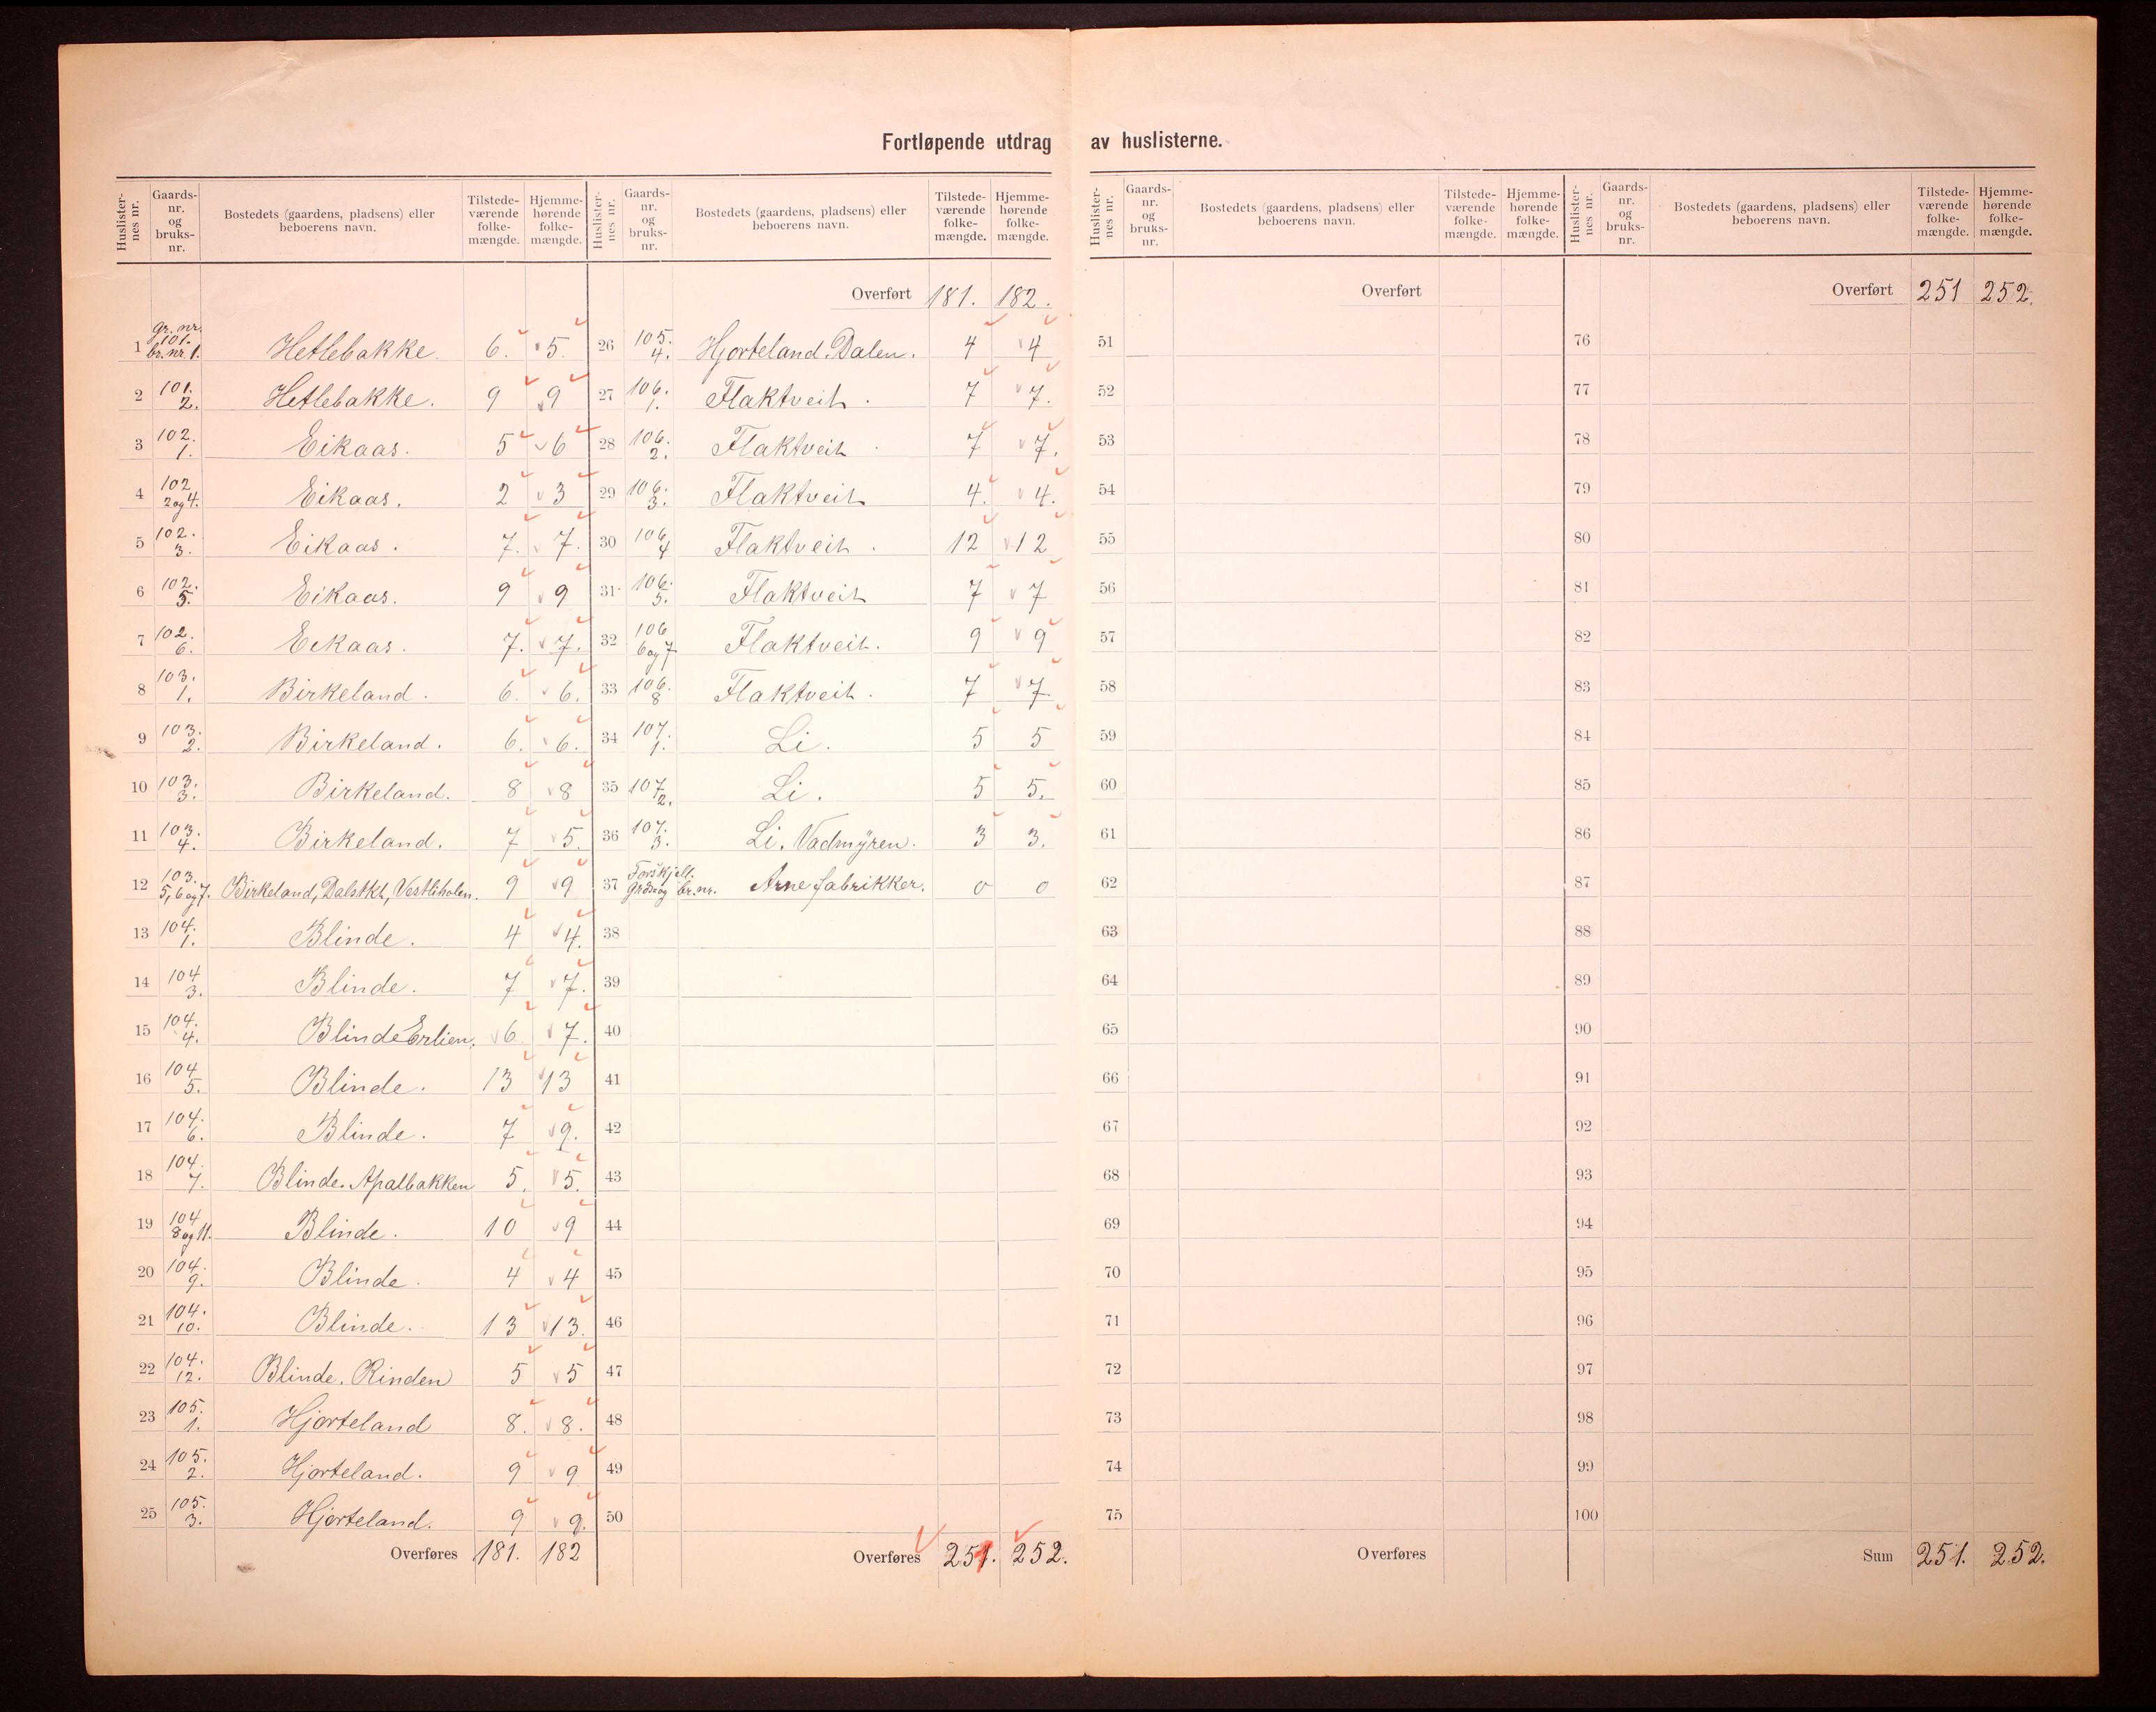 Fortløpende utdrag av huslisterne.
Huslisternes nr. Gaards-nr. og bruks-nr. Bostedets (gaardens, pladsens) eller beboerens navn. Tilstede-værende folke-mængde. Hjemme-hørende folke-mængde.
1 gr. nr. 101. br. nr. 1. Hetlebakke. 6. 5.
2 101. 2. Hetlebakke. 9 9
3 102. 1. Eikaas. 5 6
4 102 2 og 4. Eikaas. 2 3
5 102. 3. Eikaas. 7. 7.
6 102. 5. Eikaas. 9 9
7 102. 6. Eikaas. 7. 7.
8 103. 1. Birkeland. 6. 6.
9 103. 2. Birkeland. 6. 6.
10 103. 3. Birkeland. 8 8
11 103. 4. Birkeland. 7 5.
12 103. 5, 6 og 7. Birkeland, Dalstkt, Vestliholen. 9 9
13 104. 1. Blinde. 4 4.
14 104 3. Blinde. 7 7.
15 104. 4. Blinde Erlien. 6 7.
16 104 5. Blinde. 13 13
17 104. 6. Blinde. 7 9.
18 104. 7. Blinde. Apalbakken 5. 5.
19 104 8 og 11. Blinde. 10 9
20 104. 9. Blinde. 4 4
21 104. 10. Blinde. 13 13.
22 104. 12. Blinde. Rinden 5 5
23 105. 1. Hjorteland 8. 8.
24 105. 2. Hjorteland. 9 9
25 105. 3. Hjorteland. 9 9.
Overføres 181. 182
Huslisternes nr. Gaards-nr. og bruks-nr. Bostedets (gaardens, pladsens) eller beboerens navn. Tilstede-værende folke-mængde. Hjemme-hørende folke-mængde.
Overført 181. 182.
26 105. 4. Hjorteland. Dalen. 4 4
27 106. 1. Flaktveit. 7 7.
28 106. 2. Flaktveit. 7 7.
29 106. 3. Flaktveit 4. 4.
30 106 4 Flaktveit. 12 12
31 106. 5. Flaktveit 7 7
32 106 6 og 7 Flaktveit. 9 9
33 106. 8 Flaktveit. 7 7.
34 107. 1. Li. 5 5
35 107 2. Li. 5 5.
36 107. 3. Li. Vadmyren. 3 3.
37 Forskjell. grdsr og br. nr. Arne fabrikker. 0 0
38
39
40
41
42
43
44
45
46
47
48
49
50
Overføres 251. 252.
Huslisternes nr. Gaards-nr. og bruks-nr. Bostedets (gaardens, pladsens) eller beboerens navn. Tilstede-værende folke-mængde. Hjemme-hørende folke-mængde.
Overført
51
52
53
54
55
56
57
58
59
60
61
62
63
64
65
66
67
68
69
70
71
72
73
74
75
Overføres
Huslisternes nr. Gaards-nr. og bruks-nr. Bostedets (gaardens, pladsens) eller beboerens navn. Tilstede-værende folke-mængde. Hjemme-hørende folke-mængde.
Overført 251 252.
76
77
78
79
80
81
82
83
84
85
86
87
88
89
90
91
92
93
94
95
96
97
98
99
100
Sum 251. 252.